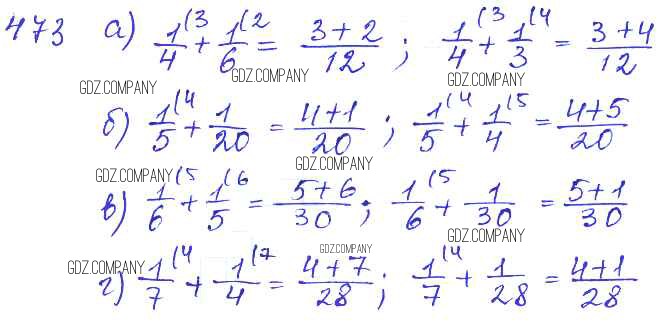 473 а) 1/4 (3 + 1/6 (2 = 3+2/12 ; 1/4 (3 + 1/3 (4 = 3+4/12
GDZ.COMPANY GDZ.COMPANY GDZ.COMPANY
б) 1/5 (4 + 1/20 = 4+1/20 ; 1/5 (4 + 1/4 (5 = 4+5/20
GDZ.COMPANY GDZ.COMPANY
в) 1/6 (5 + 1/5 (6 = 5+6/30 ; 1/6 (5 + 1/30 = 5+1/30
GDZ.COMPANY GDZ.COMPANY GDZ.COMPANY
г) 1/7 (4 + 1/4 (7 = 4+7/28 ; 1/7 (4 + 1/28 = 4+1/28